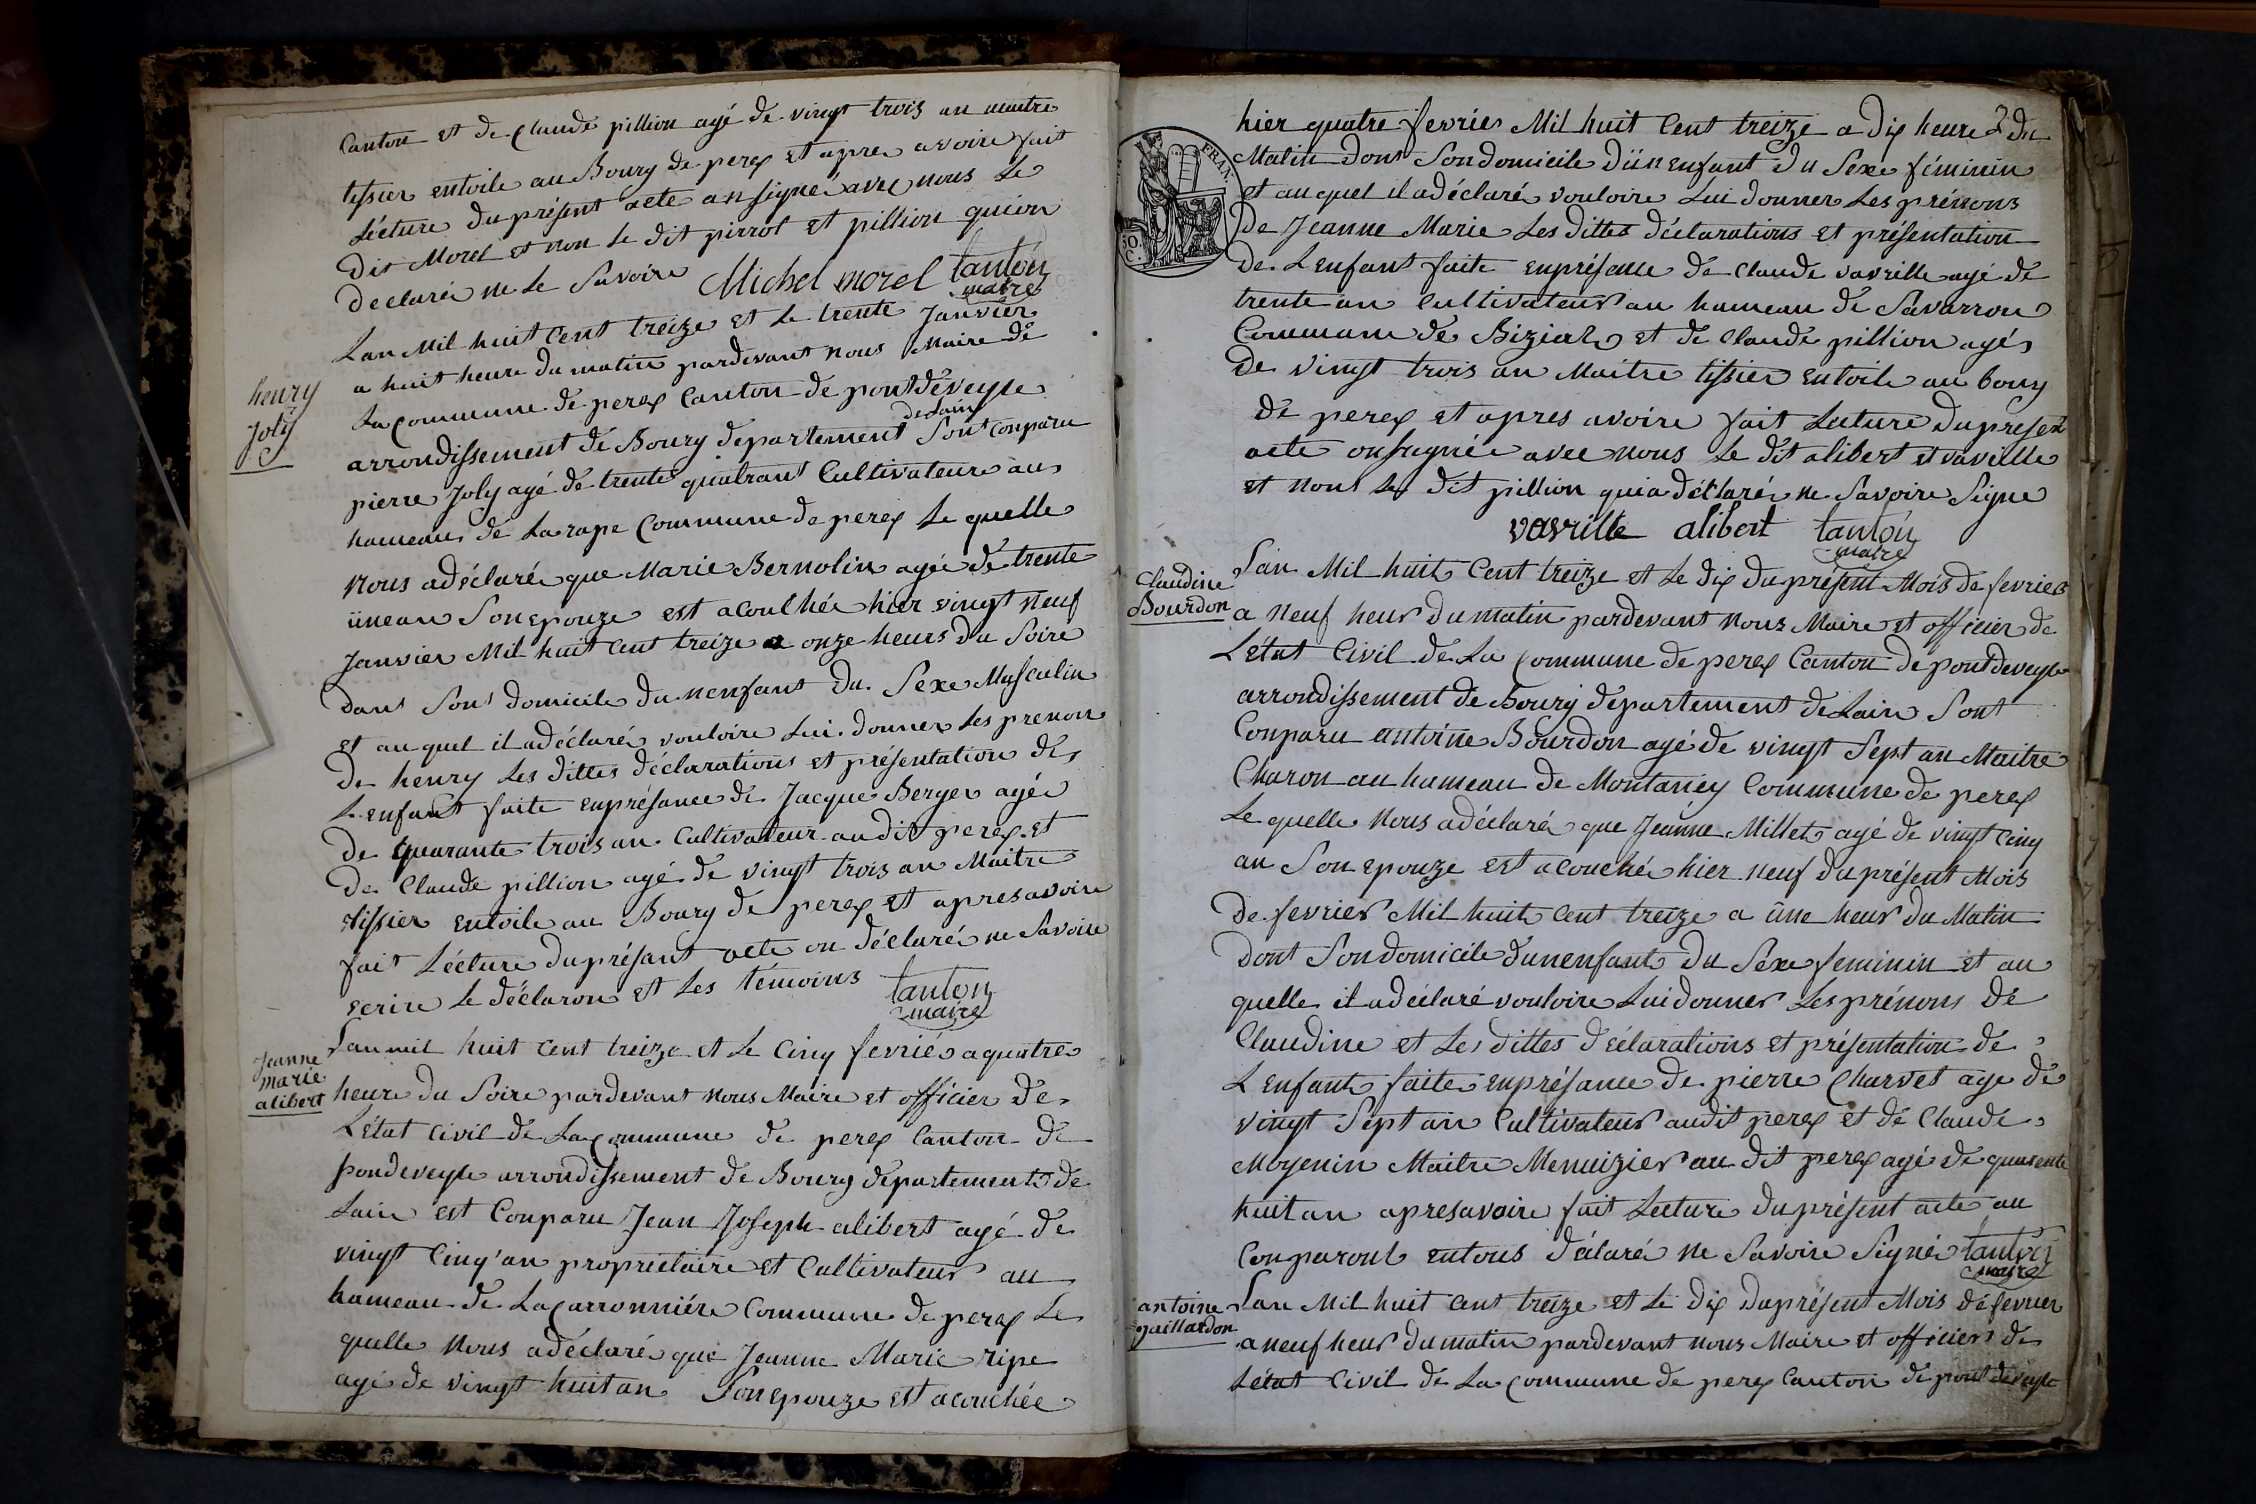 Canton et de Claude pillion agé de vingt trois an maitre
tissier entoile au Bourg de perex et apres avoire fait
Lécture du présent acte a nsigné avec nous Le
Dit Morel et non Le dit pirrot et pillion quion
declaré ne Le Savoire Michel morel tanton
maire
henry
joly
Lan Mil huit Cent treize et Le trente Janvier
a huit heure du matin pardevant nous Maire de
La Commune de perex Canton de pontdeveyle
arrondissement de Bourg departement de Lain Sont Conparu
pierre Joly agé de trente quatrant Cultivateure au
hameau de Larape Commune de perex Le quelle
nous adéclaré que Marie Bernolin agé de trente
iinean Son epouze est acouchée hier vingt neuf
Janvier Mil huit Cent treize a onze heurs du Soire
dans Son domicile dunenfant du Sexe Masculin
et au quel il adéclaré vouloire Lui donner Les prenon
De henry Les dittes déclarations et présentation de
L enfant faite enprésance de Jacque Berger agé
De quarante trois an Cultivateur audit perex et
De Claude pillion agé de vingt trois an Maitre
tissier entoile au Bourg de perex et apresavoire
fait Lécture duprésant acte on déclaré ne Savoire
ecrire Le déclaron et Les témoins tanton
maire
Jeanne
marie
alibert
Lanmil huit Cent treize et Le Cinq fevrié aquatre
heure du Soire pardevant nous Maire et officier de
L'état Civil de La Commune de perex Canton de
pondeveyle arrondissement de Bourg département de
Lain est Conparu Jean Joseph alibert agé de
vingt Cinq an proprietaire et Cultivateur au
hameau de La Carronniére Commune de perex Le
quelle Nous adéclaré que Jeanne Marie ripe
agé de vingt huit an Son epouze est acouchée
2
hier quatre fevrier Mil huit Cent treize a dix heure du
Matin dont Son domicile diinenfant du Sexe féminin
et au quel il adéclaré vouloire Lui donner Les prénons
De Jeanne Marie Les dittes déclarations et présentation
De L enfant faite enprésence de Claude vavrille agé de
trente an Cultivateur au hameau de Savarron
Commune de Biziat et de Claude pillion agé
De vingt trois an Maitre tissier entoile au bourg
de perex et apres avoire fait Lecture du present
acte onsignée avec nous Le dit alibert et vavrille
et non Le dit pillion quia déclaré ne Savoire Signe
vavrille alibert tanton
maire
FRAN
Claudine
Bourdon
Lan Mil huit Cent treize et Le dix du présent Mois de fevrier
a neuf heur du matin pardevant nous Maire et officier de
L'état Civil de La Commune de perex Canton de pontdeveyle
arrondissement de Bourg département de Lain Sont
Conparu antoine Bourdon agé de vingt Sept an Maitre
Charon au hameau de Montaney Commune de perex
Le quelle Nous adéclaré que Jeanne Millet agé de vingt Cinq
an Son epouze est acouché hier neuf du présent Mois
De fevrier Mil huit Cent treize a une heur du Matin
dont Son domicile dunenfant du Séxe feminin et au
quelle il adéclaré vouloire Lui donner Les prénons de
Claudine et Les dittes déclarations et présentation de
L enfant faite enprésance de pierre Charvet age de
vingt Sept an Cultivateur audit perex et de Claude
Moyenin Maitre Menuizier au dit perex agé de quarente
huit an apresavoire fait Lecture du présent acte au
Conparont entous déclaré ne Savoire Signé tanton
maire
antoine
gaillardon
Lan Mil huit Cent treize et Le dix du présent Mois de fevrier
a neuf heur du matin pardevant nous Maire et officier de
L'état Civil de La Commune de perex Canton de pont deveyle